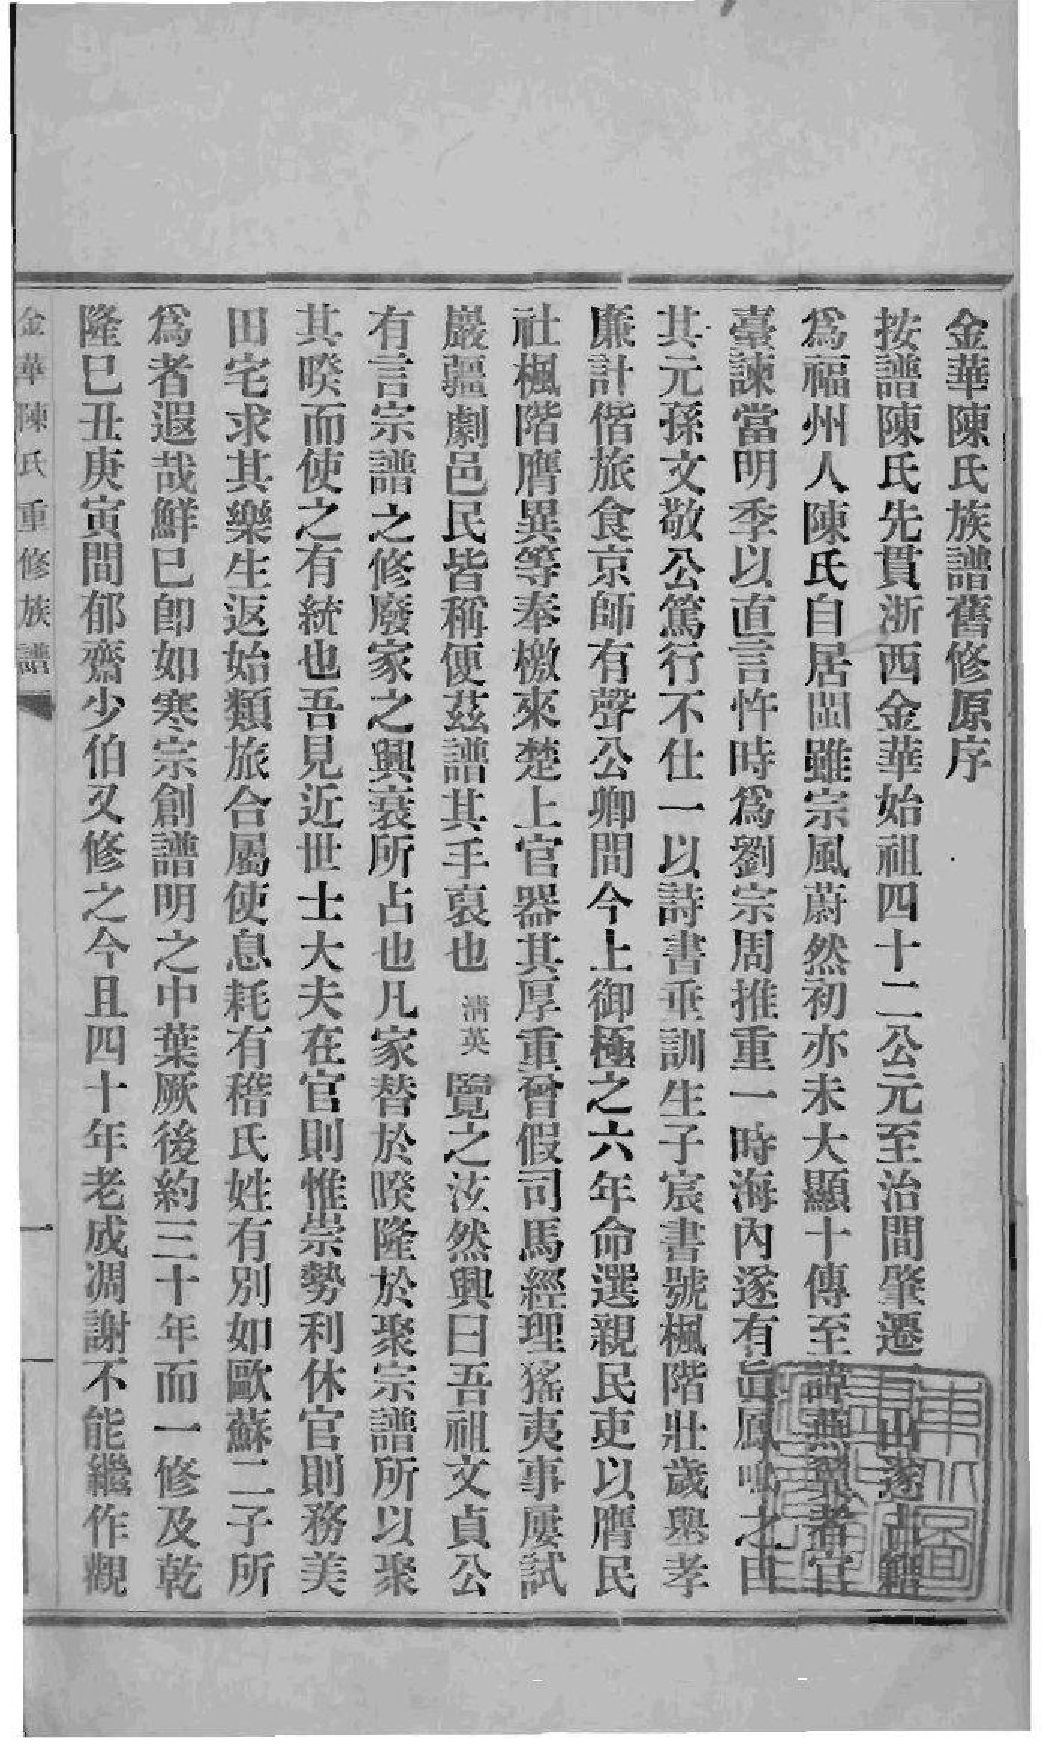 金華陳氏族譜舊修原序
按譜陳氏先貫浙西金華始祖四十二公元至治間肇遷三山遂占籍
爲福州人陳氏自居閩雖宗風蔚然初亦未大顯十傳至諱燕翼者官
臺諫當明季以直言忤時爲劉宗周推重一時海內遂有眞鳳之由
其元孫文敬公篤行不仕一以詩書垂訓生子宸書號楓階壯歲舉孝
廉計偕旅食京師有聲公卿間今上御極之六年命選親民吏以膺民
社楓階膺異等奉檄來楚上官器其厚重曾假司馬經理猺夷事屢試
巖疆劇邑民皆稱便茲譜其手裒也 淸英 覽之泫然興曰吾祖文貞公
有言宗譜之修廢家之興衰所占也凡家替於暌隆於聚宗譜所以聚
其暌而使之有統也吾見近世士大夫在官則惟崇勢利休官則務美
田宅求其樂生返始類旅合屬使息耗有稽氏姓有別如歐蘇二子所
爲者遐哉鮮已卽如寒宗創譜明之中葉厥後約三十年而一修及乾
隆巳丑庚寅間郁齋少伯又修之今且四十年老成凋謝不能繼作觀
金華陳氏重修族譜
一